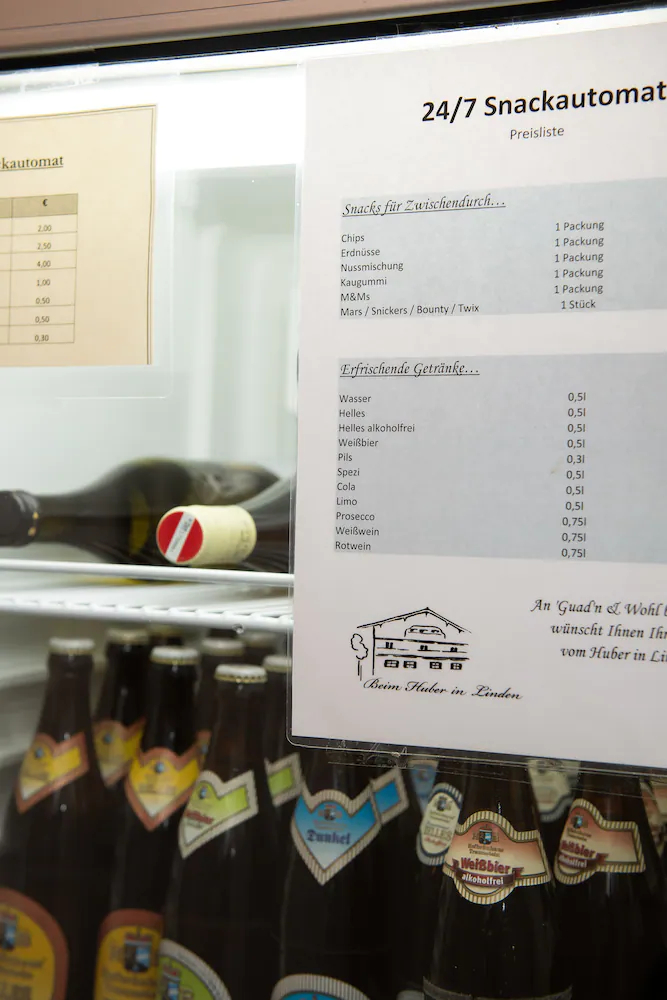 ckautomat
€
2,00
2,50
4,00
1,00
0.50
0,50
0,30
24/7 Snackautomat
Preisliste
Snacks für Zwischendurch…
Chips 1 Packung
Erdnüsse 1 Packung
Nussmischung 1 Packung
Kaugummi 1 Packung
M&Ms 1 Packung
Mars / Snickers / Bounty / Twix 1 Stück
Erfrischende Getränke…
Wasser 0,5l
Helles 0,5l
Helles alkoholfrei 0,5l
Weißbier 0,5l
Pils 0,3l
Spezi 0,5l
Cola 0,5l
Limo 0,5l
Prosecco 0,75l
Weißwein 0,75l
Rotwein 0,75l
An 'Guad'n & Wohl b
wünscht Ihnen Ihr
vom Huber in Li
Beim Huber in Linden
Dunkel
Weißbier
alkoholfrei
Weißbier
alkoholfrei